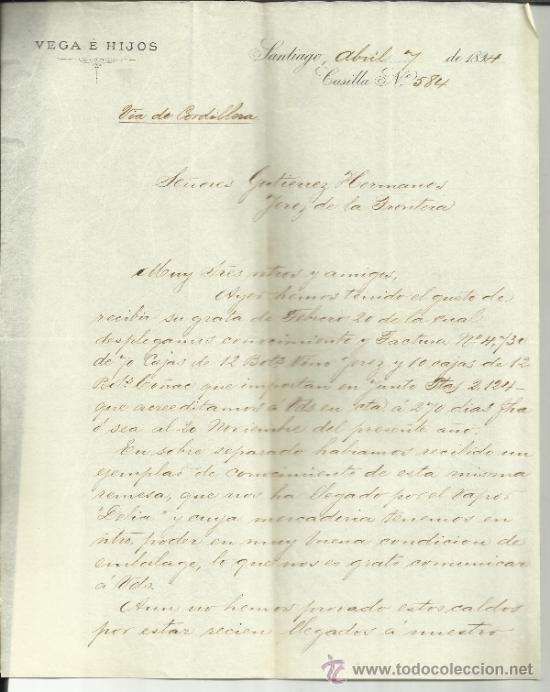 VEGA É HIJOS
Santiago, Abril 7 de 1894
Casilla Nº 584
Via de Cordillera
Señores Gutierrez Hermanos
Jerez de la Frontera
Muy Sres ntros y amigos,
Ayer hemos tenido el gusto de
recibir su grata de Febrero 20 de la cual
desplegamos conocimiento y Factura Nº 4,730
de 70 Cajas de 12 Bots Vino Jerez y 10 cajas de 12
Bots Coñac que importan en junto Pta 2,124-
que acreditamos á Vds en cta á 270 dias fha
ó sea al 20 Noviembre del presente año.
En sobre separado habiamos recibido un
ejemplar de conocimiento de esta misma
remesa, que nos ha llegado por el vapor
"Delia" y cuya mercaderia tenemos en
ntro. poder en muy buena condicion de
embalage, lo que nos es grato comunicar
á Vds.
Aun no hemos probado estos caldos
por estar recien llegados á nuestro
www.todocoleccion.net